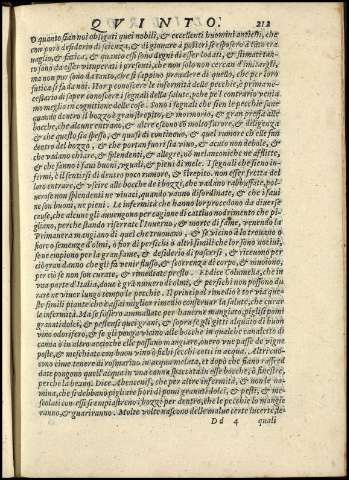 QVINTO. 212
O quanto sian noi obligati quei nobili, & eccellenti huomini antichi, che
con puro desiderio di scienza, & di giouare a posteri si esposero à tāto tra
uaglio, e fatica, & quanto essi sono degni di esser lodati, & stimati tan-
to sono da esser uituperati i presenti, che non solo non cercan d'imitargli,
ma non pur sono da tanto, che si sappino preualere di quello, che per loro
fatica s'hà da noi. Hor per conoscere le infermità delle pecchie, prima ne-
cessario di saper conoscere i segnali della salute, che pe'l contrario venia
mo meglio in cognitione delle cose. Sono i segnali che sien le pecchie sane
quando dentro il bozzo è gran strepito, & mormorio, & gran pressa alle
bocche, che alcune entrano, & altre escono cō molto furore, & diligenza
& che questo sia spesso, & quasi di continouo, & quel rumore ch'elle fan
dentro del bozzo, & che portan fuori sia viuo, & acuto non debole, &
che vadano chiare, & splendenti, & allegre, nō melanconiche ne afflitte,
& che sanno i faui buoni, uguali, & pieni di mele. I segnali che sieno in-
fermi, è il sentirsi di dentro poco rumore, & strepito. non esser fretta del
loro entrare, & vscire alle bocche de i bozzi, che vadano rabbuffate, pol-
uerose non splendenti ne viuaci, quando vanno disordinate, & che i faui
nō son buoni, ne pieni. Le infermità che hanno lor procedono da diuerse
cause, che alcune gli auuengono per cagione di cattiuo nodrimento che pi-
gliano, perche stando riserrate l'Inuerno, & morte di fame, venendo la
Primauera mangiano di quel che truouano, & se vicino a lo truouano
fiore o semenze d'olmi, ò fior di persichi ò altri simili che lor sono noiui,
se ne empiono per la gran fame, & desiderio di pascersi, & riceuono per
ciò gran danno che gli fà venir flusso, & scorrenza di corpo, & uomiono,
per ciò se non son curate, & rimediate presto. Et dice Columella, che in
vna parte d'Italia, doue è grā numero di olmi, & persichi non possono du
rare ne viuer lungo tempo le pecchie. Il principal rimedio è tor via que-
ste simili piante che è assai miglior rimedio conseruar la salute, che curar
le infermità. Ma se fussero ammalate per hauerne mangiato, piglisi pomi
granati dolci, & pestinsi quei grani, & sopra se gli gitti alquāto di buon
vino odorifero, & di quello si vien ponendo alle bocche in qualche candelotto di
canna ò in altro acteche elle possano mangiare, ouero vue passe de vigne
peste, meschiate con buon vino ò fichi secchi cotti in acqua. Altri cuo-
cono cime tenere di rosmarino in acqua melata, et dapo che siano raffred
date pongono quell'acqua in vna canna spaccata in esse bocce, ò finestre,
perche la beano. Dice Abencenif, che per altre infermità, & non le no-
mina, che si debbano pigliare fiori di pomi granati dolci, & pesti, & me-
scolati con essi s'empiastreno i bozzi per dentro, che le pecchie lo mangie
ranno, & guariranno. Molto volte nascono delle malue certe lucerte, le
Dd 4 quali